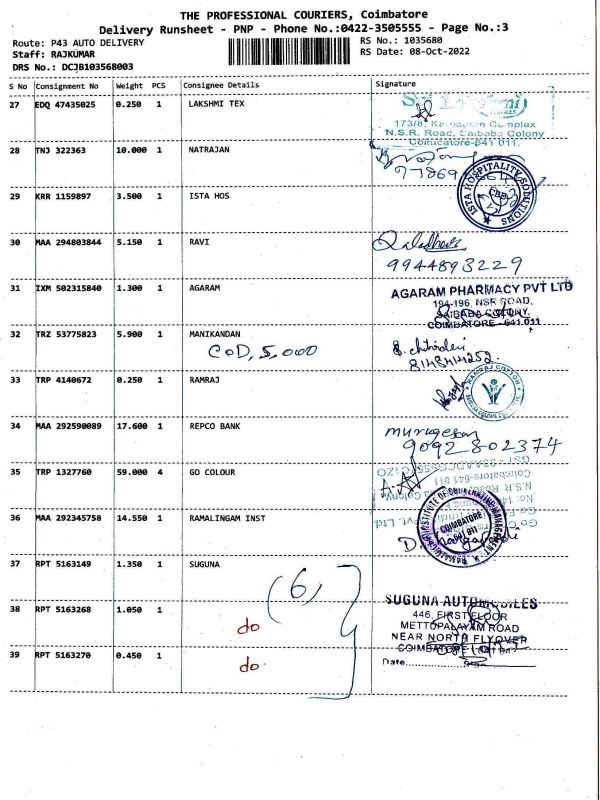 THE PROFESSIONAL COURIERS, Coimbatore
Delivery Runsheet - PNP - Phone No.:0422-3505555 - Page No.:3
Route: P43 AUTO DELIVERY
RS No.: 1035680
Staff: RAJKUMAR
RS Date: 08-Oct-2022
DRS No.: DCJB103568003
S No Consignment No Weight PCS Consignee Details Signature
27 EDQ 47435025 0.250 1 LAKSHMI TEX
173/8,
N.S.R. Road, Saibaba Colony
Coimbatore-641 011.
28 TNJ 322363 10.000 1 NATRAJAN
29 KRR 1159897 3.500 1 ISTA HOS
ISTA HOSPITALITY SOLUTIONS
CBE
30 MAA 294803844 5.150 1 RAVI
9944893229
31 IXM 502315840 1.300 1 AGARAM
AGARAM PHARMACY PVT LTD
194-196, NSR ROAD,
SAIBABA COLONY,
COIMBATORE - 641 011
32 TRZ 53775823 5.900 1 MANIKANDAN
COD, 5,000
33 TRP 4140672 0.250 1 RAMRAJ
RAMRAJ COTTON
34 MAA 292590089 17.600 1 REPCO BANK
murugesan
9092802374
35 TRP 1327760 59.000 4 GO COLOUR
36 MAA 292345758 14.550 1 RAMALINGAM INST
COIMBATORE
641 011
37 RPT 5163149 1.350 1 SUGUNA
(6)
38 RPT 5163268 1.050 1
do
39 RPT 5163270 0.450 1
do
SUGUNA AUTOMOBILES
446, FIRST FLOOR
METTUPALAYAM ROAD
NEAR NORTH FLYOVER
COIMBATORE
Date